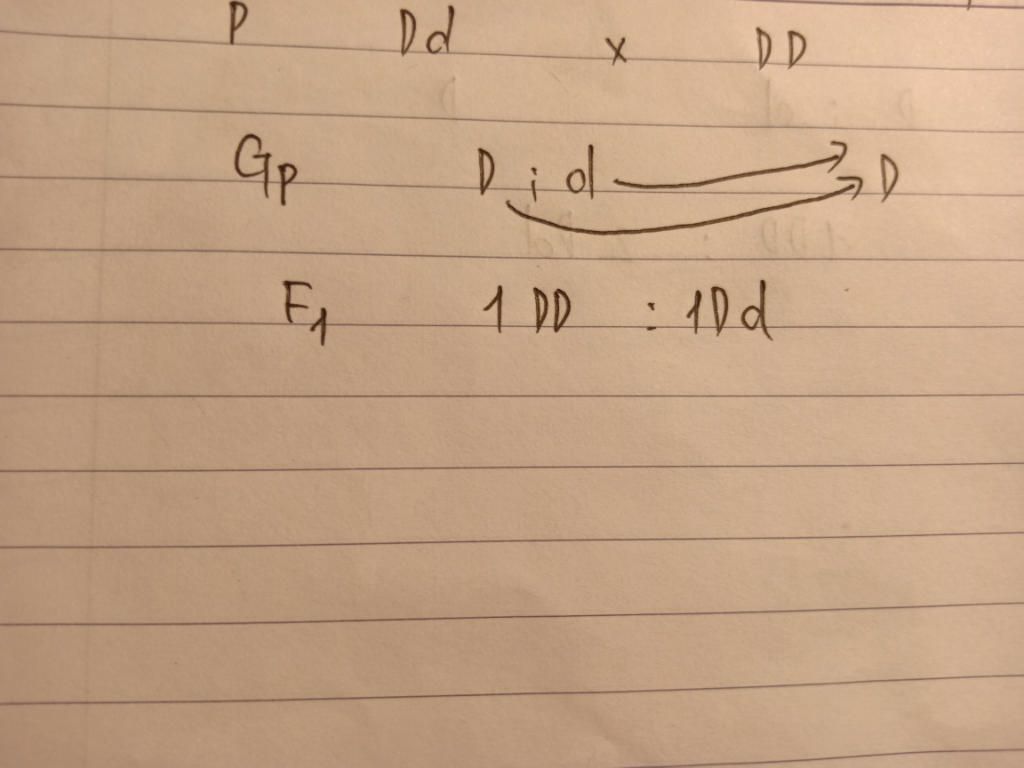 P Dd x DD
Gp D ; d → D
F1 1 DD : 1Dd